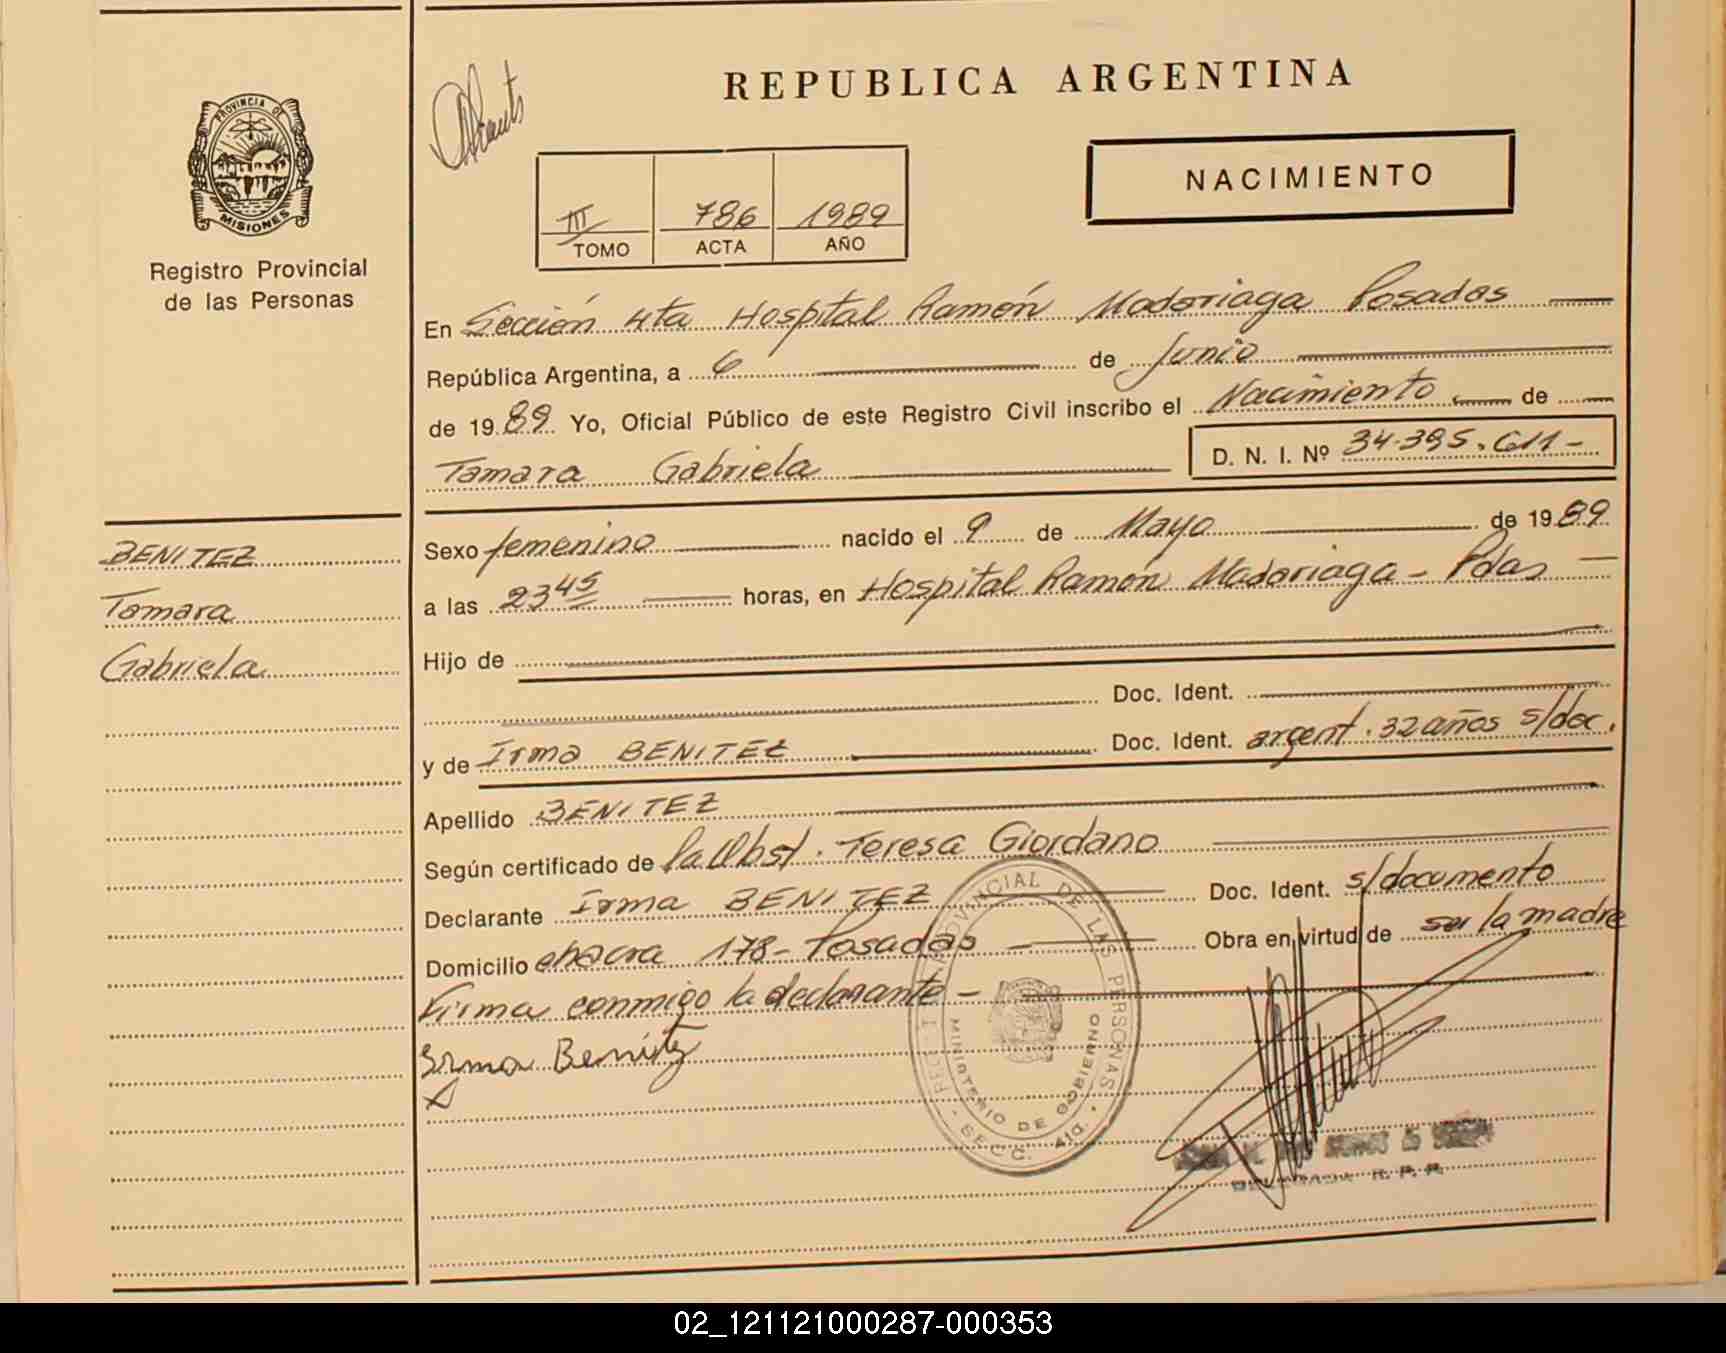 REPUBLICA ARGENTINA
PROVINCIA DE
MISIONES
Registro Provincial
de las Personas
NACIMIENTO
III 786 1989
TOMO ACTA AÑO
En Sección 4ta Hospital Ramón Madariaga Posadas
República Argentina, a 6 de Junio
de 1989 Yo, Oficial Público de este Registro Civil inscribo el Nacimiento de
Tamara Gabriela D. N. I. Nº 34.395.611-
BENITEZ
Tamara
Gabriela
Sexo femenino nacido el 9 de Mayo de 1989
a las 23 45 horas, en Hospital Ramón Madariaga - Pdas
Hijo de
Doc. Ident.
y de Irma BENITEZ Doc. Ident. argent. 32 años s/doc.
Apellido BENITEZ
Según certificado de la Obst. Teresa Giordano
Declarante Irma BENITEZ Doc. Ident. s/documento
Domicilio chacra 178- Posadas Obra en virtud de ser la madre
Firma conmigo la declarante -
Irma Benitez
PROVINCIAL DE LAS PERSONAS
MINISTERIO DE GOBIERNO
- SECC. 4ta. -
DELEGADA R. P. P.
02_121121000287-000353